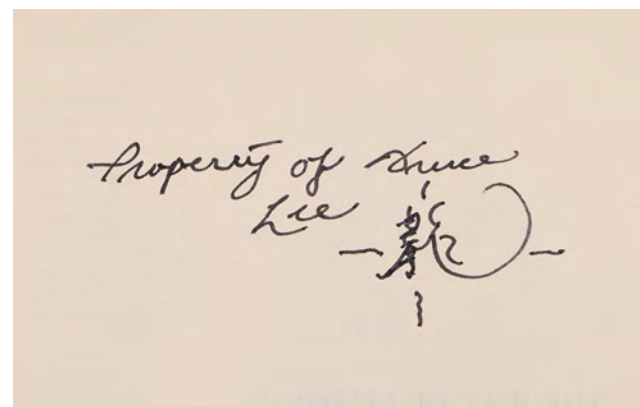 Property of Bruce
Lee